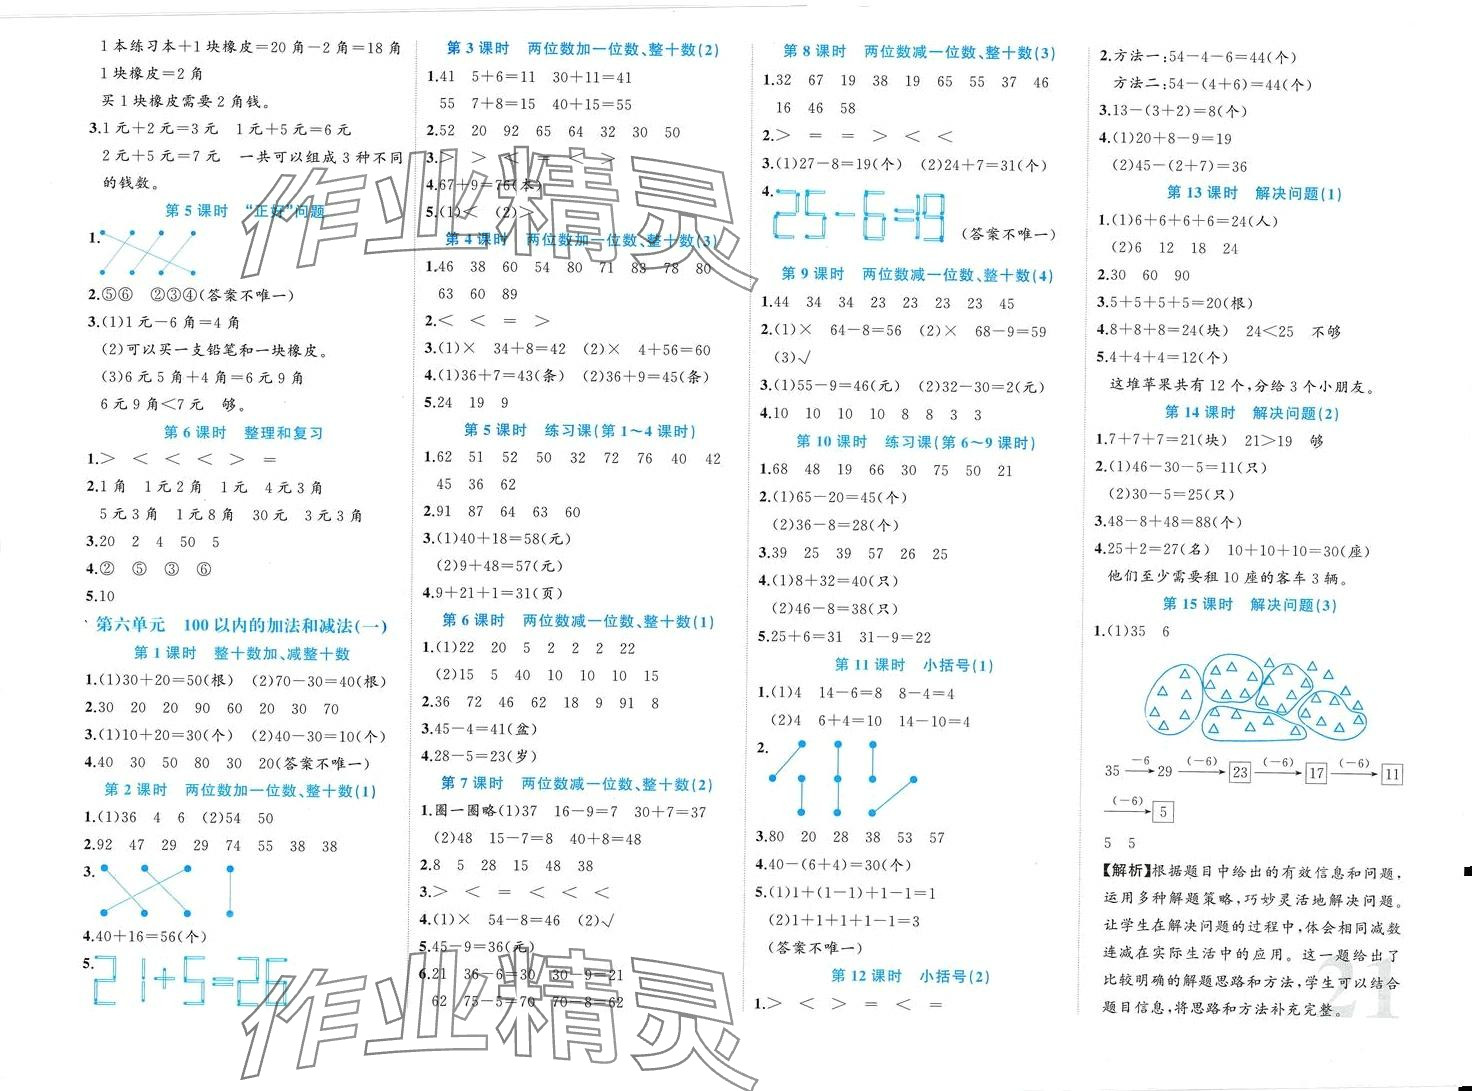 1本练习本+1块橡皮=20角-2角=18角
1块橡皮=2角
买1块橡皮需要2角钱。
3.1元+2元=3元 1元+5元=6元
2元+5元=7元 一共可以组成3种不同
的钱数。
第5课时 “正好”问题
1.
2.⑤⑥ ②③④(答案不唯一)
3.(1)1元-6角=4角
(2)可以买一支铅笔和一块橡皮。
(3)6元5角+4角=6元9角
6元9角<7元 够。
第6课时 整理和复习
1.> < < < > =
2.1角 1元2角 1元 4元3角
5元3角 1元8角 30元 3元3角
3.20 2 4 50 5
4.② ⑤ ③ ⑥
5.10
第六单元 100以内的加法和减法(一)
第1课时 整十数加、减整十数
1.(1)30+20=50(根) (2)70-30=40(根)
2.30 20 20 90 60 20 30 70
3.(1)10+20=30(个) (2)40-30=10(个)
4.40 30 50 80 30 20(答案不唯一)
第2课时 两位数加一位数、整十数(1)
1.(1)36 4 6 (2)54 50
2.92 47 29 29 74 55 38 38
3.
4.40+16=56(个)
5. 21+5=26
第3课时 两位数加一位数、整十数(2)
1.41 5+6=11 30+11=41
55 7+8=15 40+15=55
2.52 20 92 65 64 32 30 50
3.> > < = < >
4.67+9=76(本)
5.(1)< (2)>
第4课时 两位数加一位数、整十数(3)
1.46 38 60 54 80 71 83 78 80
63 60 89
2.< < = >
3.(1)× 34+8=42 (2)× 4+56=60
4.(1)36+7=43(条) (2)36+9=45(条)
5.24 19 9
第5课时 练习课(第1~4课时)
1.62 51 52 50 32 72 76 40 42
45 36 62
2.91 87 64 63 60
3.(1)40+18=58(元)
(2)9+48=57(元)
4.9+21+1=31(页)
第6课时 两位数减一位数、整十数(1)
1.(1)22 20 5 2 2 2 22
(2)15 5 40 10 10 10 15
2.36 72 46 62 18 9 91 8
3.45-4=41(盆)
4.28-5=23(岁)
第7课时 两位数减一位数、整十数(2)
1.圈一圈略(1)37 16-9=7 30+7=37
(2)48 15-7=8 40+8=48
2.8 5 28 15 48 38
3.> < = < < =
4.(1)× 54-8=46 (2)√
5.45-9=36(元)
6.21 36-6=30 30-9=21
62 75-5=70 70-8=62
第8课时 两位数减一位数、整十数(3)
1.32 67 19 38 19 65 55 37 46
16 46 58
2.> = = > < <
3.(1)27-8=19(个) (2)24+7=31(个)
4. 25-6=19
(答案不唯一)
第9课时 两位数减一位数、整十数(4)
1.44 34 34 23 23 23 23 45
2.(1)× 64-8=56 (2)× 68-9=59
(3)√
3.(1)55-9=46(元) (2)32-30=2(元)
4.10 10 10 10 8 8 3 3
第10课时 练习课(第6~9课时)
1.68 48 19 66 30 75 50 21
2.(1)65-20=45(个)
(2)36-8=28(个)
3.39 25 39 57 26 25
4.(1)8+32=40(只)
(2)46-8=38(只)
5.25+6=31 31-9=22
第11课时 小括号(1)
1.(1)4 14-6=8 8-4=4
(2)4 6+4=10 14-10=4
2.
3.80 20 28 38 53 57
4.40-(6+4)=30(个)
5.(1)1+(1-1)+1-1=1
(2)1+1+1+1-1=3
(答案不唯一)
第12课时 小括号(2)
1.> < > = < =
2.方法一:54-4-6=44(个)
方法二:54-(4+6)=44(个)
3.13-(3+2)=8(个)
4.(1)20+8-9=19
(2)45-(2+7)=36
第13课时 解决问题(1)
1.(1)6+6+6+6=24(人)
(2)6 12 18 24
2.30 60 90
3.5+5+5+5=20(根)
4.8+8+8=24(块) 24<25 不够
5.4+4+4=12(个)
这堆苹果共有12个,分给3个小朋友。
第14课时 解决问题(2)
1.7+7+7=21(块) 21>19 够
2.(1)46-30-5=11(只)
(2)30-5=25(只)
3.48-8+48=88(个)
4.25+2=27(名) 10+10+10=30(座)
他们至少需要租10座的客车3辆。
第15课时 解决问题(3)
1.(1)35 6
35 -6 29 (-6) 23 (-6) 17 (-6) 11
(-6) 5
5 5
【解析】根据题目中给出的有效信息和问题,
运用多种解题策略,巧妙灵活地解决问题。
让学生在解决问题的过程中,体会相同减数
连减在实际生活中的应用。这一题给出了
比较明确的解题思路和方法,学生可以结合
题目信息,将思路和方法补充完整。
21
作业精灵
作业精灵